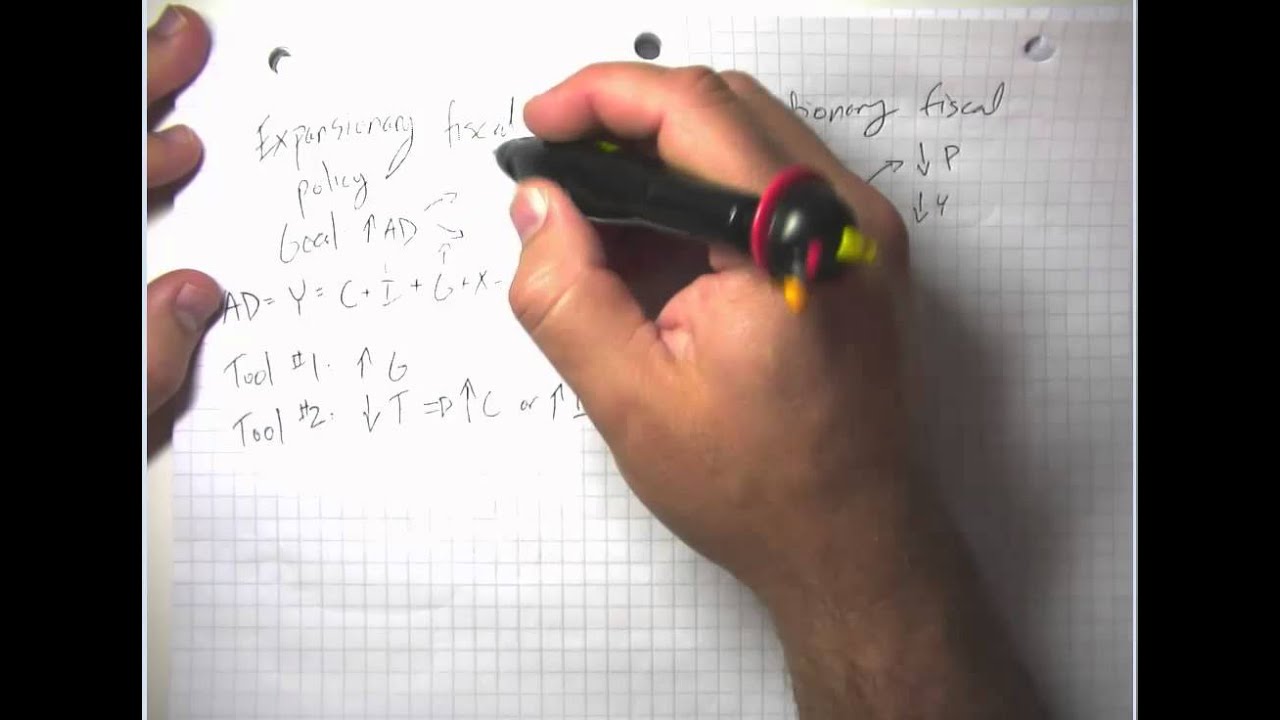 Expansionary fiscal
policy
Goal ↑ AD
AD = Y = C + I + G + X -
Tool #1. ↑ G
Tool #2. ↓ T ⇒ ↑ C or ↑ I
fiscal
↓ P
↓ Y